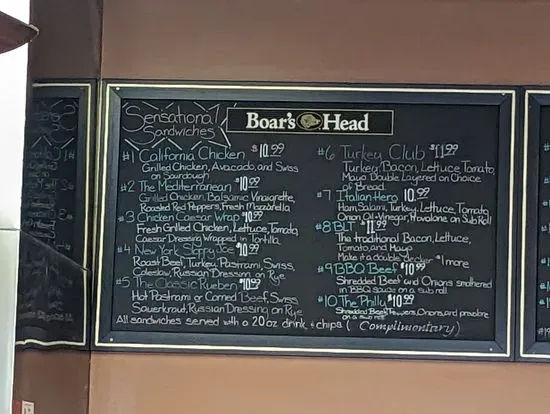 Sensational
Sandwiches
Boar's Head
#1 California Chicken $10.99
Grilled Chicken, Avacado, and Swiss
on Sourdough
#2 The Mediterranean $10.99
Grilled Chicken, Balsamic Vinaigrette,
Roasted Red Peppers, Fresh Mozzarella
#3 Chicken Caesar Wrap $10.99
Fresh Grilled Chicken, Lettuce, Tomato,
Caesar Dressing Wrapped in Tortilla
#4 New York Sloppy Joe $10.99
Roast Beef, Turkey, Pastrami, Swiss,
Coleslaw, Russian Dressing on Rye
#5 The Classic Rueben $10.99
Hot Pastrami or Corned Beef, Swiss,
Sauerkraut, Russian Dressing on Rye
#6 Turkey Club $11.99
Turkey, Bacon, Lettuce Tomato,
Mayo Double Layered on Choice
of Bread
#7 Italian Hero 10.99
Ham, Salami, Turkey, Lettuce, Tomato,
Onion Oil + Vinegar, Provalone on Sub Roll
#8 BLT $11.99
The traditional Bacon, Lettuce,
Tomato, and Mayo
Make it a double decker $1 more
#9 BBQ Beef $10.99
Shredded Beef and Onions smothered
in BBQ sauce on a sub roll
#10 The Philly $10.99
Shredded Beef, Peppers, Onions, and provalone
on a sub roll
All sandwiches served with a 20oz drink + chips (Complimentary)